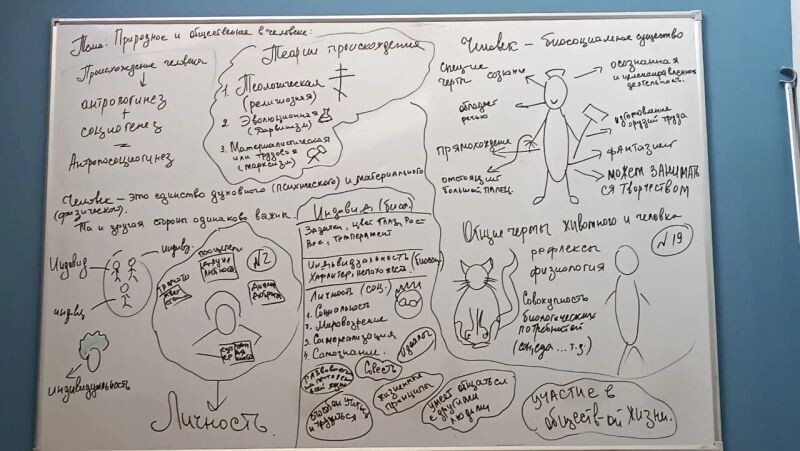 Тема: Природное и общественное в человеке:
Происхождение человека
антропогинез
+
социогенез
=
Антропосоциогинез
Теории происхождения
1. Теологическая
(религиозная)
2. Эволюционная
(Дарвинизм)
3. Материалистическая
или трудовая
(марксизм)
Человек – это единство духовного (психического) и материального
(физического).
Та и другая стороны одинаково важны.
Индивид
индивид
индивид
индивидуальность
№2
Личность
Индивид (био.)
Задатки, цвет глаз, Рост
Вес, Темперамент
Индивидуальность (биосоц)
Характер, непохожесть
Личность (соц.)
1. Социальность
2. Мировозрение
3. Самореализация
4. Самознание.
идеалы
Совесть
жизненные
принципы
способен учится
и трудиться
умеет общаться
с другими
людьми
Человек – биосоциальное существо
специ-ие
черты
сознание
обладает
речью
прямохождение
отстоящий
большой палец.
осознанная
и целенаправленная
деятельность.
изготовление
орудий труда
фантазия
может занимать
ся творчеством
Общие черты животного и человка
№19
рефлексы
физиология
Совокупность
биологических
потребностей
(сон, еда ... т.д.)
участие в
обществ-ой жизни.